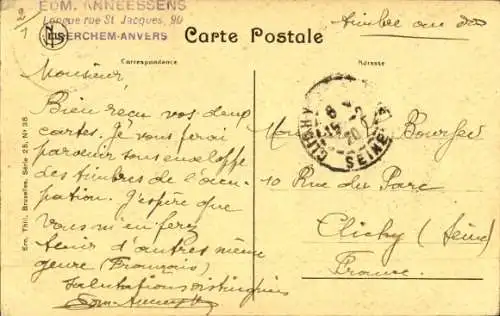 EDM. ANNEESSENS
Longue rue St Jacques, 90
BERCHEM-ANVERS
2/1
Timbre au dos
Carte Postale
Correspondance
Adresse
Monsieur
Bien reçu vos deux
cartes. Je vous ferai
parvenir sous enveloppe
des timbres de l'occu-
pation. J'espère que
vous m'en ferez
tenir d'autres même
genre (Français)
Salutations distinguées
Edm. Anneessens
CLICHY
SEINE
Bourgey
10 Rue du Parc
Clichy (Seine)
France.
Ern. Thill, Bruxelles, Série 25, No 35